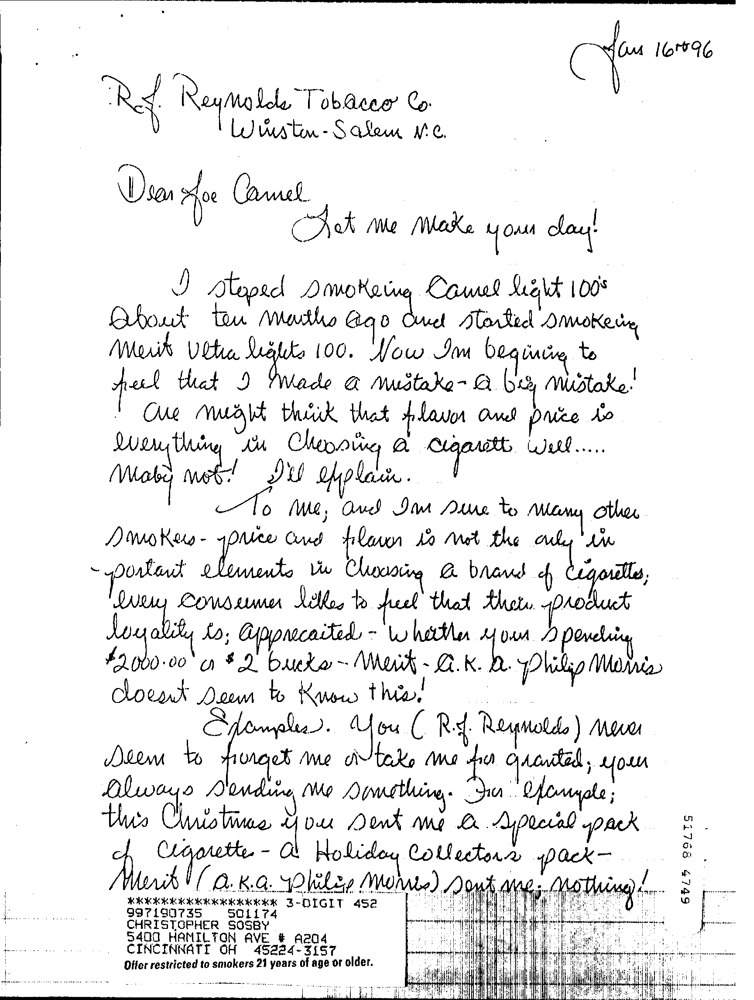 Jan 16th 96
R.J. Reynolds Tobacco Co.
Winston-Salem N.C.
Dear Joe Camel
Let me make your day!
I stoped smokeing Camel light 100's
About ten months ago and started smokeing
Merit Ultra lights 100. Now Im begining to
feel that I made a mistake - a big mistake!
One might think that flavor and price is
everything in Choosing a cigarett well.....
Maby not! I'll explain.
To me, and Im sure to many other
smokers - price and flavor is not the only im
-portant elements in Choosing a brand of cigarettes;
every consumer likes to feel that their product
loyality is; apprecaited - whether your spending
$2000.00 or $2 bucks - Merit - a.k.a. Philip Morris
doesnt seem to know this!
Examples. You (R.J. Reynolds) never
seem to forget me or take me for granted; your
always sending me something. For example;
this Christmas you sent me a special pack
of Cigarettes - a Holiday Collectors pack -
Merit (a.k.a. Philip Morris) sent me; nothing!
****************** 3-DIGIT 452
997190735 501174
CHRISTOPHER SOSBY
5400 HAMILTON AVE # A204
CINCINNATI OH 45224-3157
Offer restricted to smokers 21 years of age or older.
51768 4749